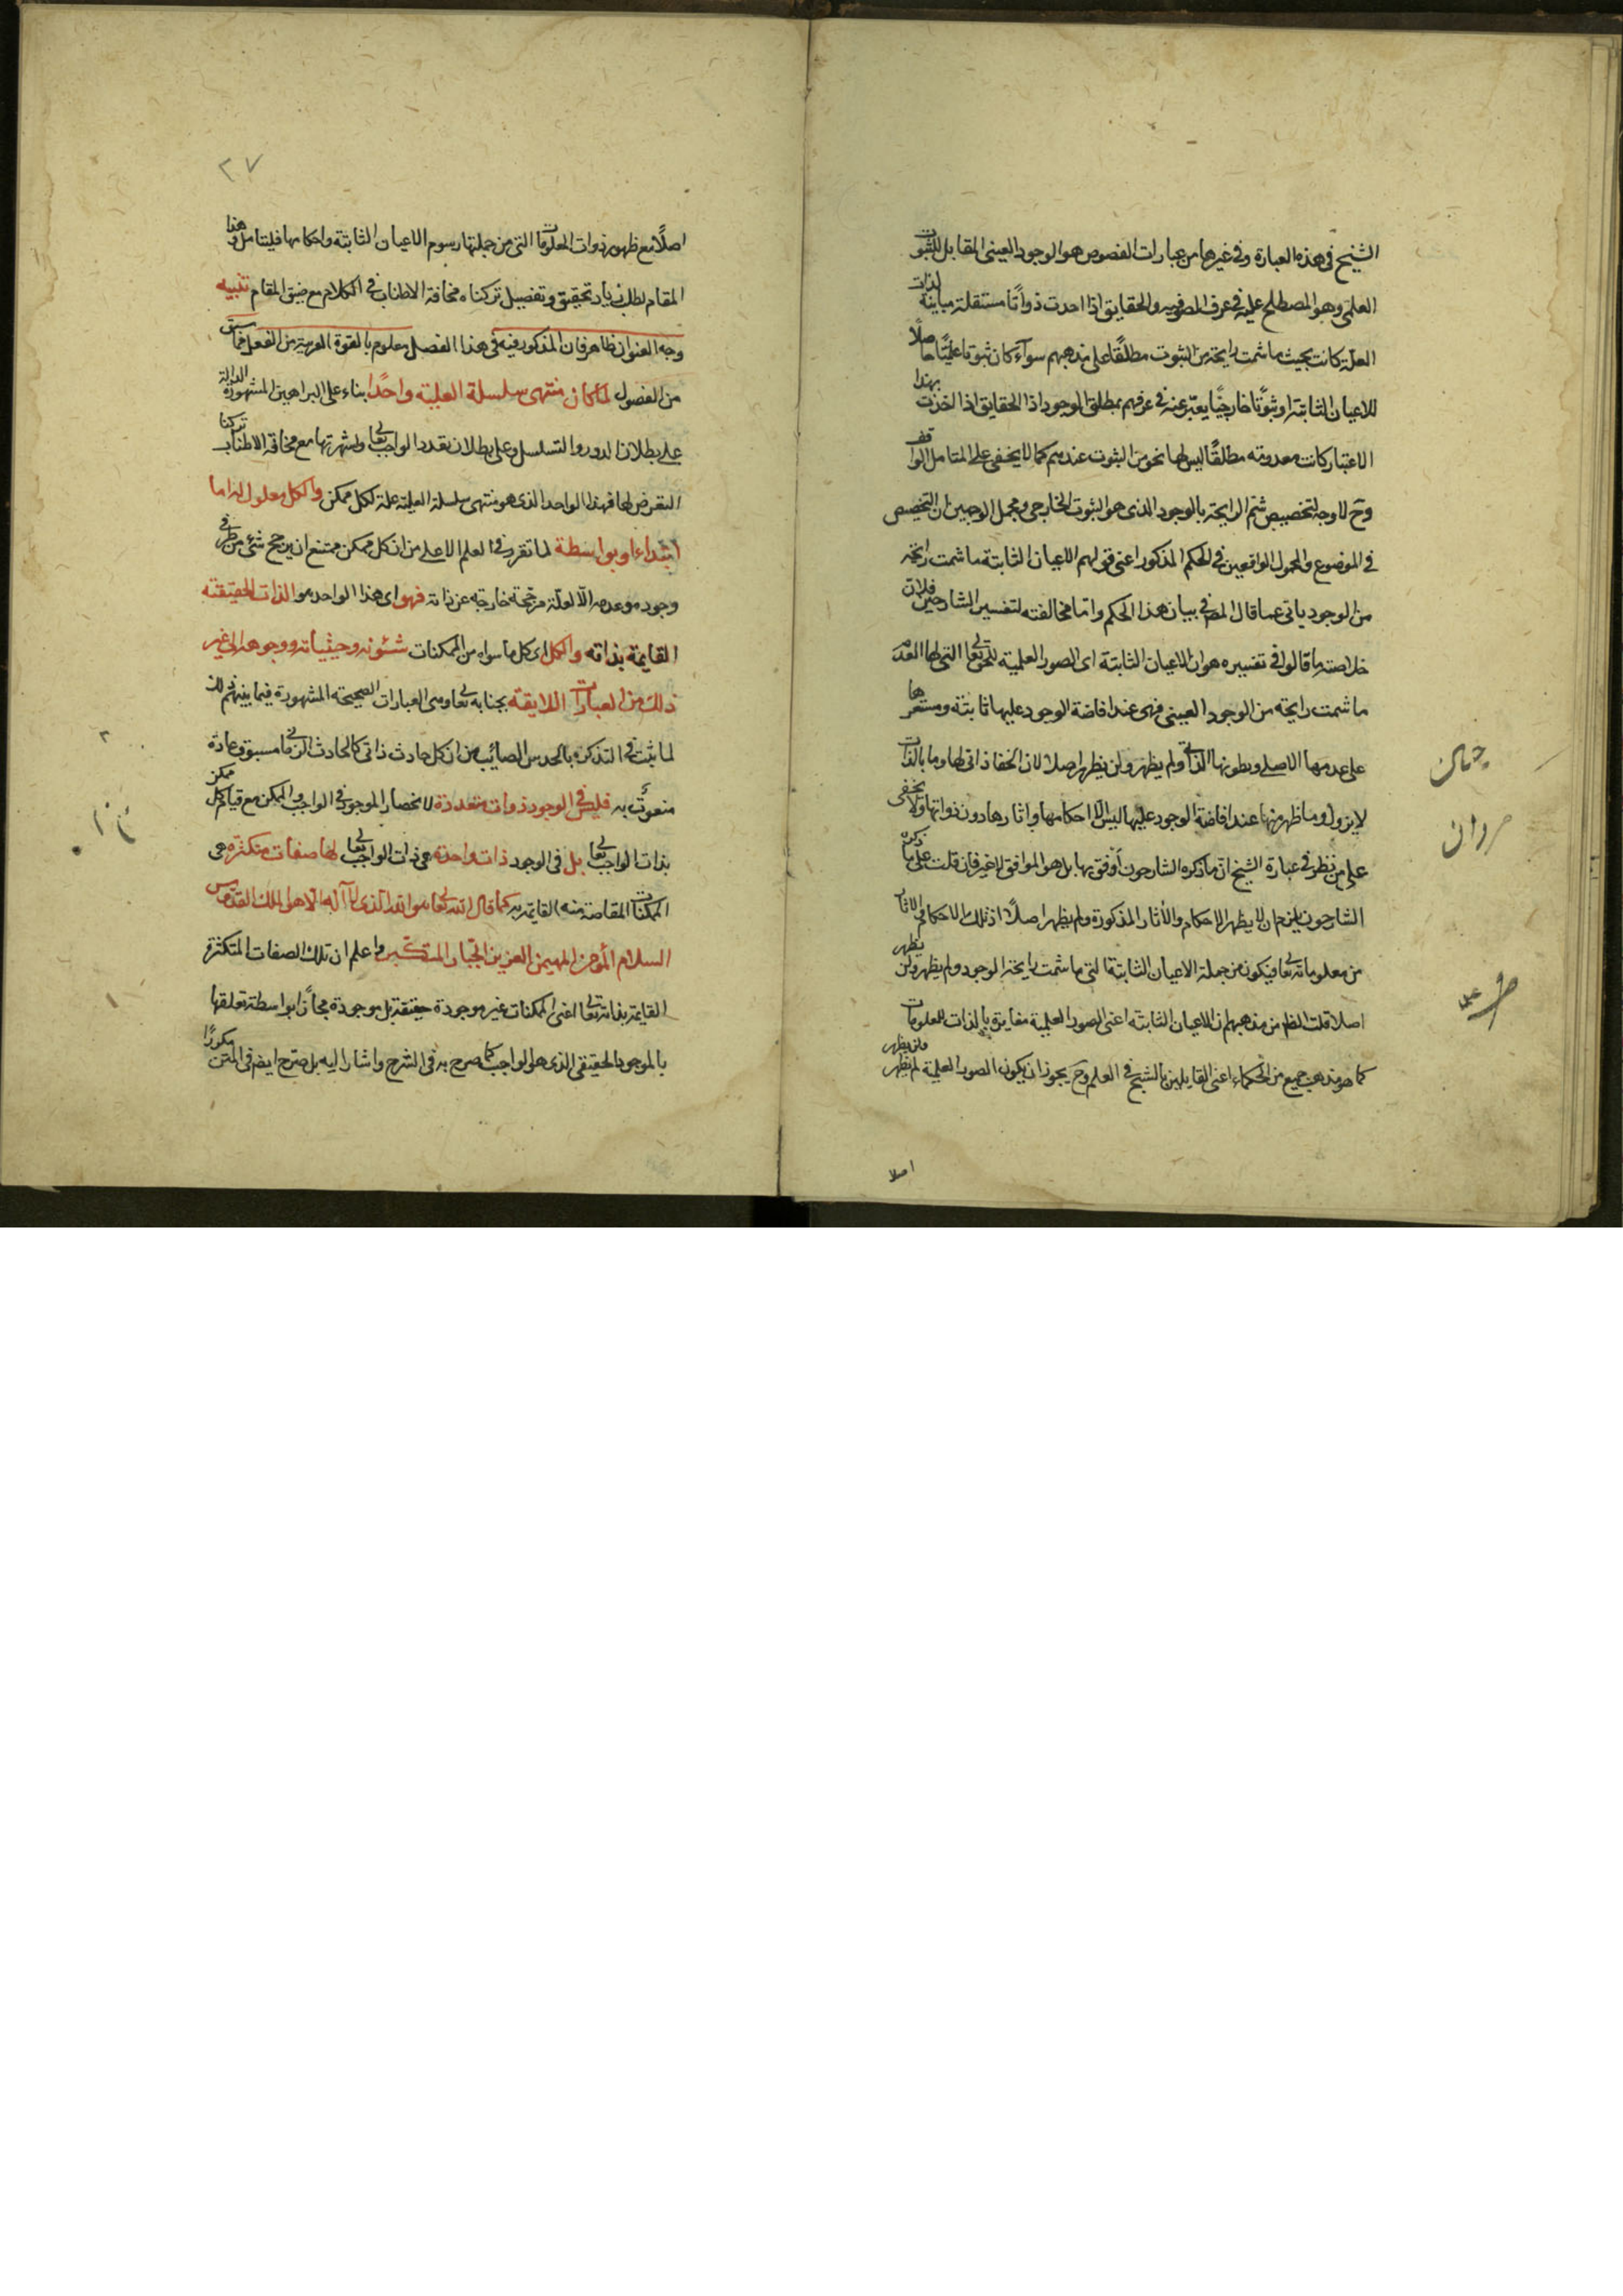 الشيخ في هذه العبارة وفي غيرها من عبارات الفصوص هو الوجود العيني المقابل للثبوت
العلمي وهو المصطلح عليه في عرف الصوفيه والحقايق اذا احدت ذواتًا مستقلة مباينة لذات
العلة كانت بحيث ما شمت رايحة من الثبوت مطلقًا على مذهبهم سوآء كان ثبوتا علميًا حاصلًا
للاعيان الثابتة او ثبوتًا خارجيًا يعبّر عنه في عرفهم بمطلق الوجود اذا الحقايق اذا اخذت بهذا
الاعتبار كانت معدومة مطلقًا ليس لها نحو من الثبوت عندهم كما لا يخفى على المتامل الواقف
وح لا وجه لتخصيص شم الرايحة بالوجود الذي هو الثبوت الخارجي ومجمل الوجهين ان التخصيص
في الموضوع والمحمول الواقعين في الحكم المذكور اعني قولهم الاعيان الثابتة ما شمت رايحة
من الوجود يابى عما قال المص في بيان هذا الحكم واما مخالفته لتفسير الشارحين فلان
خلاصة ما قالوا في تفسيره هو ان الاعيان الثابتة اى الصور العلمية للحق تعالى التي لها العدم
ما شمت رايحة من الوجود العيني فهى عند افاضة الوجود عليها ثابتة ومستقرها
على عدمها الاصلي وبطونها الذاتي ولم يظهر ولن يظهر اصلا لان الخفا ذاتي لها وما بالذات
لا يزول وما ظهر منها عند افاضة الوجود عليها ليس الا احكامها واثارها دون ذواتها ولا يخفى
على من نظر في عبارة الشيخ ان ما ذكره الشارحون أوفق بها بل هو الموافق لا غير فان قلت على ما ذكره
الشارحون يلزم ان لا يظهر الاحكام والأثار المذكورة ولم يظهر اصلًا اذ تلك الاحكام والاثار
من معلوماته تعالى فيكون من جملة الاعيان الثابتة التي ما شمت رايحة الوجود ولم يظهر ولن يظهر
اصلا قلت الظ من مذهبهم ان الاعيان الثابتة اعنى الصور العلمية مغايرة بالذات للمعلومات
كما هو مذهب جميع من الحكماء اعنى القايلين بالشبح في العلم وح يجوز ان يكون الصور العلمية لم يظهر ولن يظهر
اصلا
٢٧
اصلًا مع ظهور ذوات المعلومات التي من جملتها رسوم الاعيان الثابتة واحكامها فليتامل وهذا
المقام لطلب زيادة تحقيق وتفصيل تركناه مخافة الاطناب في الكلام مع ضيق المقام تنبيه
وجه العنوان ظاهر فان المذكور فيه في هذا الفصل معلوم بالقوة القريبة من الفعل مما سبق
من الفصول لما كان منتهى سلسلة العلية واحدًا بناء على البراهين المشهورة الدالة
على بطلان الدور والتسلسل وعلى بطلان تعدد الواجب تعالى ولشهرتها مع مخافة الاطناب تركنا
التعرض لها فهذا الواحد الذي هو منتهى سلسلة العلية علة لكل ممكن والكل معلول له اما
ابتداء او بواسطة لما تقرر في العلم الاعلى من ان كل ممكن ممتنع ان يرجح شئ من طرفي
وجوده وعدمه الا لعلة مرجحة خارجة عن ذاته فهو اى هذا الواحد هو الذات الحقيقة
القايمة بذاته والكل اى كل ما سواه من الممكنات شئونه وحيثياته ووجوهه الى غير
ذلك من العبارات اللايقة بجنابه تعالى وهى العبارات الصحيحة المشهورة فيما بينهم وذلك
لما ثبت في التذكرة بالحدس الصائب من ان كل حادث ذاتي كالحادث الزماني مسبوق بمادة
منعوت به فليس في الوجود ذوات متعددة لانحصار الموجود في الواجب والممكن مع قيام كل ممكن
بذات الواجب تعالى بل في الوجود ذات واحدة هى ذات الواجب تعالى لها صفات متكثرة هى
الممكنات المفاضة منه القايمة به كما قال الله تعالى هو الله الذي لا آله الا هو الملك القدوس
السلام المؤمن المهيمن العزيز الجبار المتكبر واعلم ان تلك الصفات المتكثرة
القايمة بذاته تعالى اعنى الممكنات غير موجودة حقيقة بل موجودة مجازًا بواسطة تعلقها
بالموجود الحقيقي الذي هو الواجب كما صرح به في الشرح واشار اليه بل صرح ايضا في المتن مكررًا